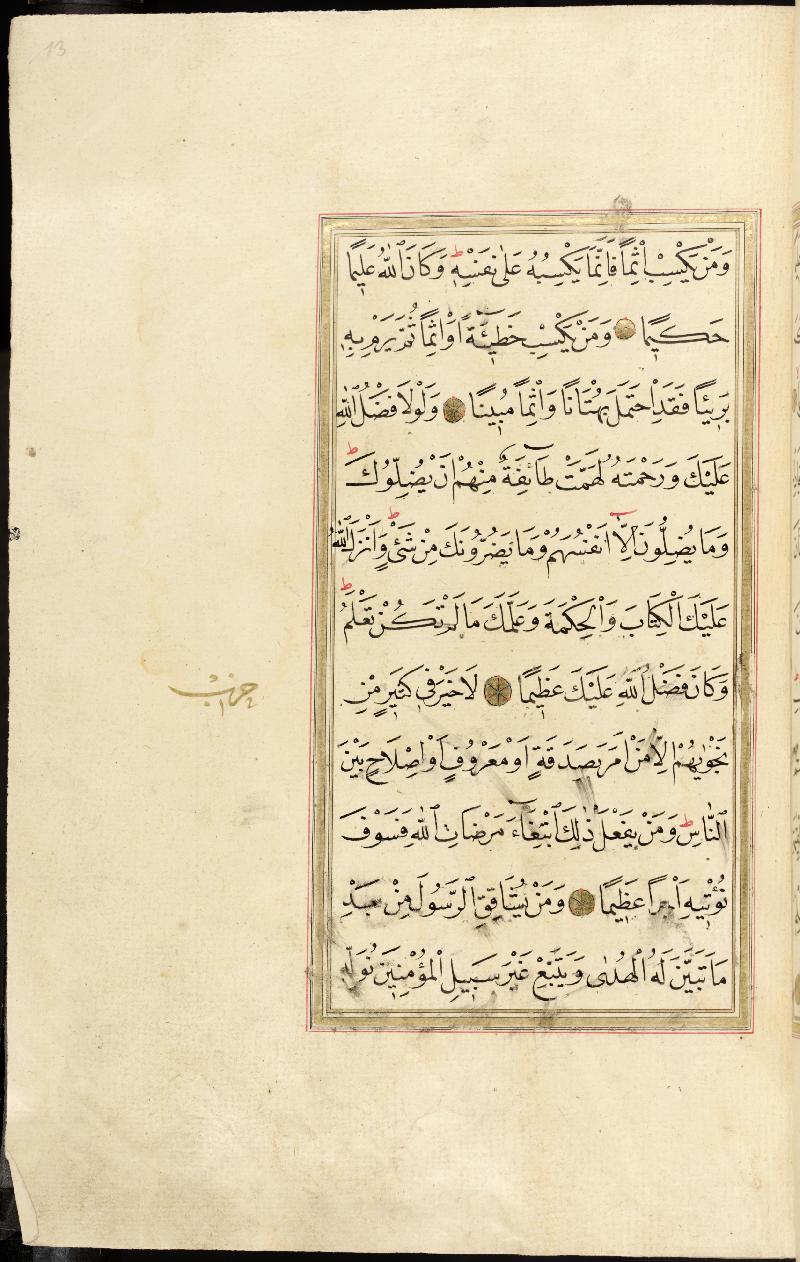 13
وَمَنْ يَكْسِبْ اِثْمًا فَاِنَّمَا يَكْسِبُهُ عَلٰى نَفْسِهٖ ط وَكَانَ اللّٰهُ عَلِيمًا
حَكِيمًا وَمَنْ يَكْسِبْ خَطِيئَةً اَوْ اِثْمًا ثُمَّ يَرْمِ بِهٖ
بَرِيئًا فَقَدِ احْتَمَلَ بُهْتَانًا وَاِثْمًا مُبِينًا وَلَوْلَا فَضْلُ اللّٰهِ
عَلَيْكَ وَرَحْمَتُهُ لَهَمَّتْ طَائِفَةٌ مِنْهُمْ اَنْ يُضِلُّوكَ ط
وَمَا يُضِلُّونَ اِلَّا اَنْفُسَهُمْ وَمَا يَضُرُّونَكَ مِنْ شَيْءٍ ط وَاَنْزَلَ اللّٰهُ
عَلَيْكَ الْكِتَابَ وَالْحِكْمَةَ وَعَلَّمَكَ مَا لَمْ تَكُنْ تَعْلَمُ ط
وَكَانَ فَضْلُ اللّٰهِ عَلَيْكَ عَظِيمًا لَا خَيْرَ فِي كَثِيرٍ مِنْ
حزب
نَجْوٰيهُمْ اِلَّا مَنْ اَمَرَ بِصَدَقَةٍ اَوْ مَعْرُوفٍ اَوْ اِصْلَاحٍ بَيْنَ
النَّاسِ ط وَمَنْ يَفْعَلْ ذٰلِكَ ابْتِغَاءَ مَرْضَاتِ اللّٰهِ فَسَوْفَ
نُؤْتِيهِ اَجْرًا عَظِيمًا وَمَنْ يُشَاقِقِ الرَّسُولَ مِنْ بَعْدِ
مَا تَبَيَّنَ لَهُ الْهُدٰى وَيَتَّبِعْ غَيْرَ سَبِيلِ الْمُؤْمِنِينَ نُوَلِّهٖ